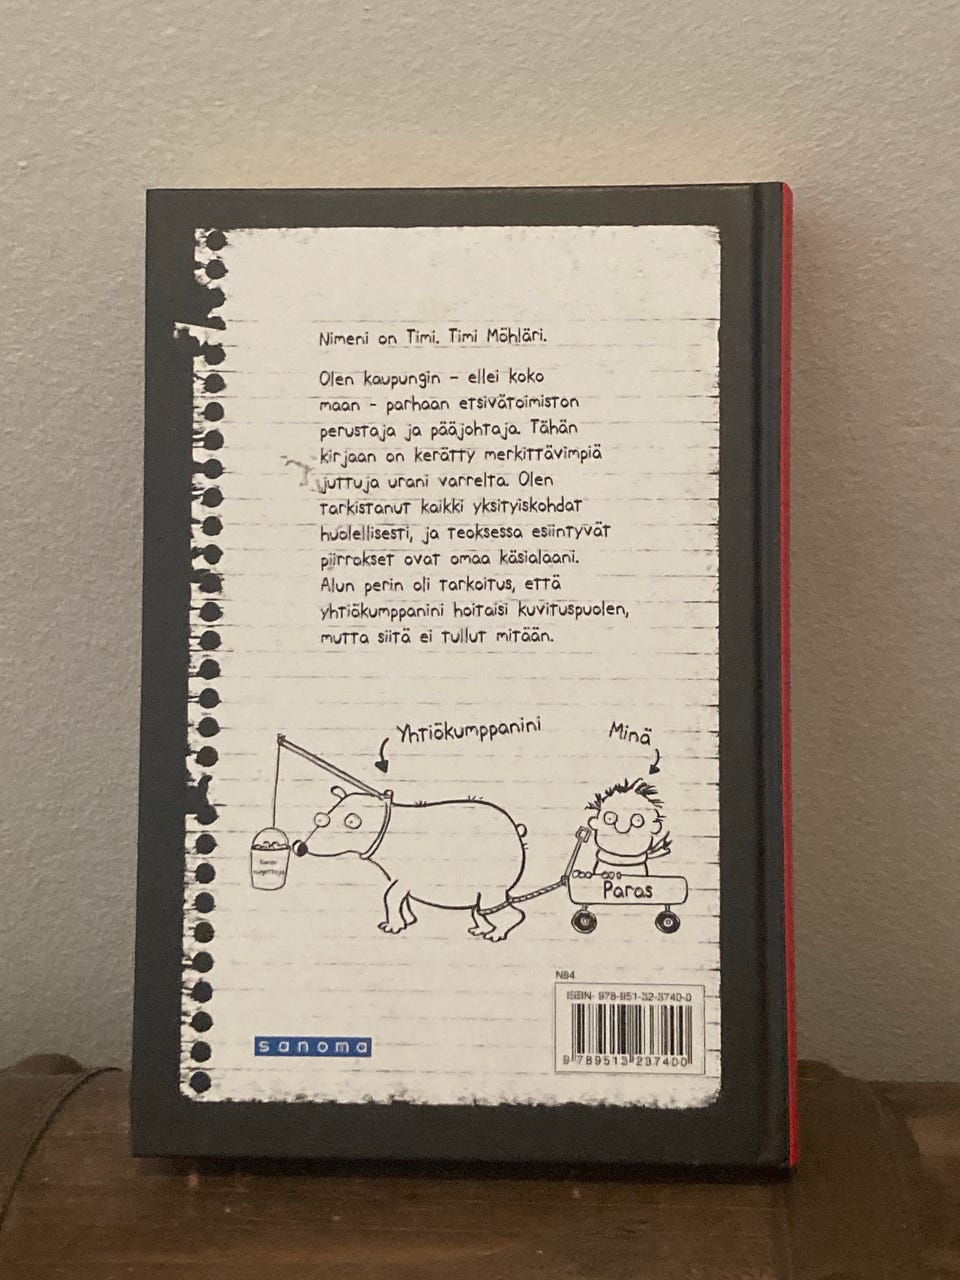 Nimeni on Timi. Timi Möhläri.
Olen kaupungin – ellei koko
maan – parhaan etsivätoimiston
perustaja ja pääjohtaja. Tähän
kirjaan on kerätty merkittävimpiä
juttuja urani varrelta. Olen
tarkistanut kaikki yksityiskohdat
huolellisesti, ja teoksessa esiintyvät
piirrokset ovat omaa käsialaani.
Alun perin oli tarkoitus, että
yhtiökumppanini hoitaisi kuvituspuolen,
mutta siitä ei tullut mitään.
Yhtiökumppanini
Minä
Paras
N84
ISBN- 978-951-32-3740-0
9 789513 237400
sanoma